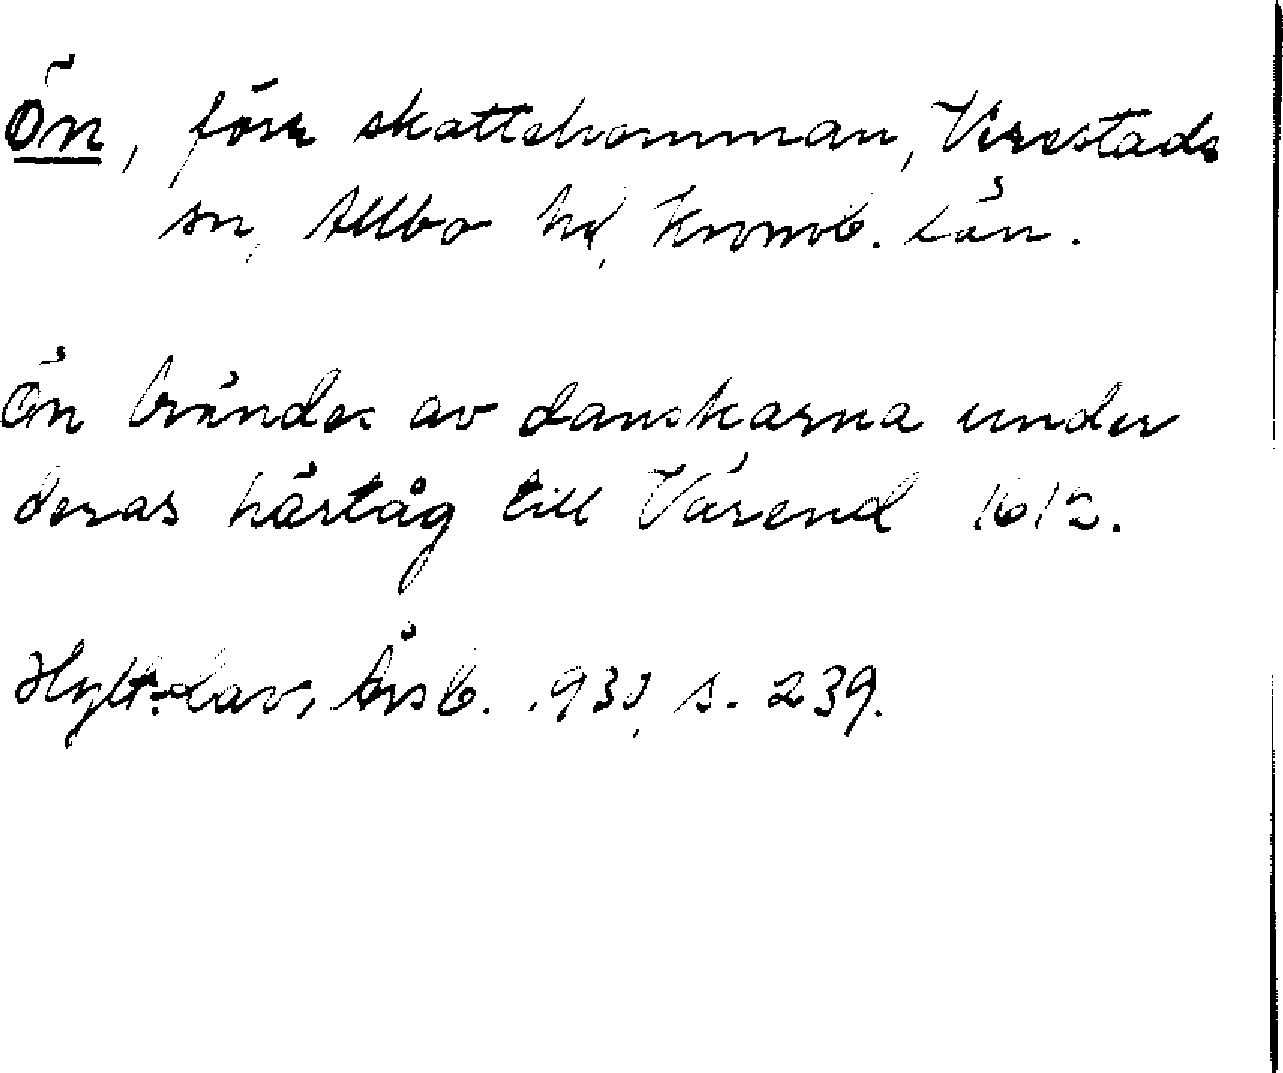 Ön, förr skattehemman, Virestads
sn, Allbo hd, Kronob. Län.
Ön brändes av danskarna under
deras härtåg till Värend 1612.
Hylt.-Cav, Årsb. 1930, s. 239.